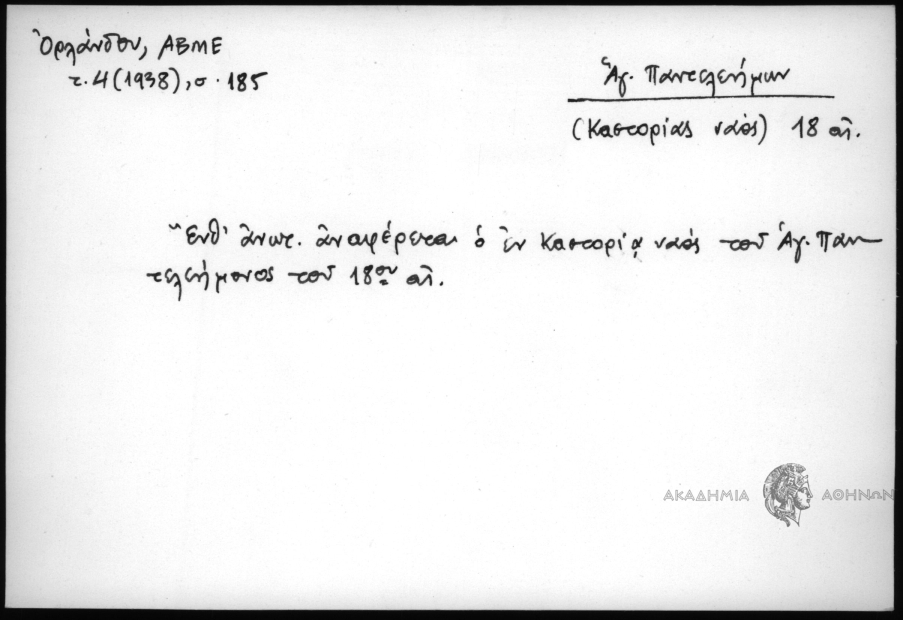 Ὀρλάνδου, ΑΒΜΕ
τ. 4 (1938), σ. 185
Ἁγ. Παντελεήμων
(Καστορίας ναός) 18 αἰ.
Ἔνθ' ἀνωτ. ἀναφέρεται ὁ ἐν Καστορίᾳ ναός τοῦ Ἁγ. Παν-
τελεήμονος τοῦ 18ου αἰ.
ΑΚΑΔΗΜΙΑ ΑΘΗΝΩΝ